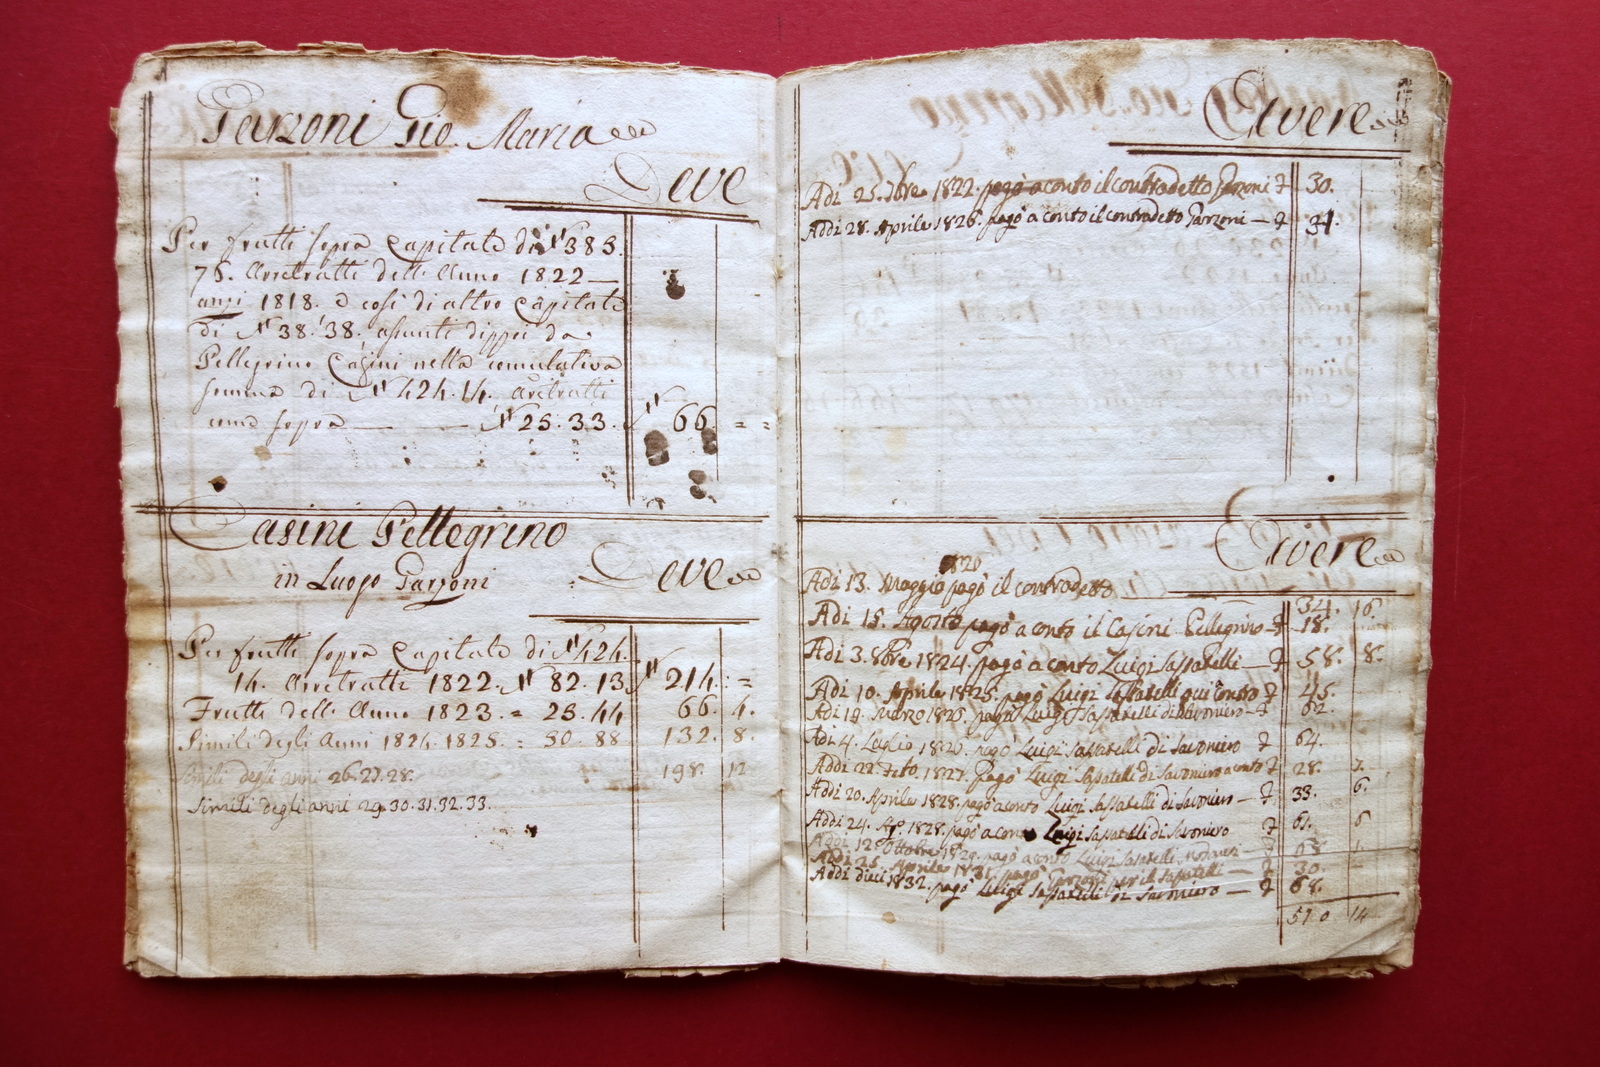 Garzoni Gio. Maria
Deve
Per frutti sopra Capitale di 383.
76. Arretratti dell Anno 1822
anzi 1818. e così di altro Capitale
di 38.38. asunti dippoi da
Pellegrino Casini nella comulativa
somma di 424.14. Arretratti
come sopra 25.33. 66 = =
Casini Pellegrino
in Luogo Garzoni
Deve
Per frutti sopra Capitale di 424.
14. Arretratti 1822. 82.13 214. =
Frutti dell Anno 1823. = 25.44 66. 4.
Simili degli Anni 1824. 1825. = 50.88 132. 8.
Simili degli anni 26.27.28. 198. 12
Simili degli anni 29.30.31.32.33.
Avere
Adi 25. 1822. pagò a conto il contradetto Garzoni 30.
Addi 28. Aprile 1826. pagò a conto il contradetto Garzoni — 34.
Avere
1820
Adi 13. Maggio pagò il contradetto
34. 16.
Adi 15. Agosto pagò a conto il Casini Pellegrino 18.
Adi 3. 8bre 1824. pagò a conto Luigi Sassatelli — 58. 8.
Adi 10. Aprile 1825. pagò Luigi Sassatelli 45.
Adi 19. Marzo 1826. pagò Luigi Sassatelli di Savoniero — 62.
Adi 4. Luglio 1826. pagò Luigi Sassatelli di Savoniero 64.
Addi 22. Feb. 1827. pagò Luigi Sassatelli di Savoniero a conto 28. 7.
Addi 20. Aprile 1828. pagò a conto Luigi Sassatelli di Savoniero — 33. 6.
Addi 24. 1828. pagò a conto Luigi Sassatelli di Savoniero 61. 6
Addi 12. Ottobre 1829. pagò a conto Luigi Sassatelli
Addi 25. Aprile 1831. pagò Garzoni per il Sassatelli — 30.
Addi dieci 1832. pagò Luigi Sassatelli di Savoniero — 68.
510 14